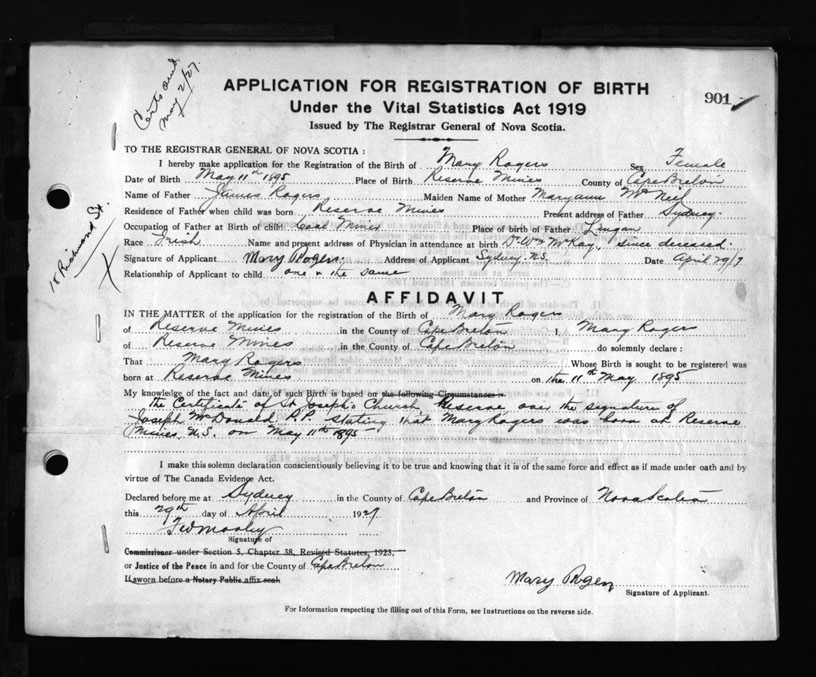 May 2/27.
APPLICATION FOR REGISTRATION OF BIRTH
901
Under the Vital Statistics Act 1919
Issued by The Registrar General of Nova Scotia.
TO THE REGISTRAR GENERAL OF NOVA SCOTIA :
I hereby make application for the Registration of the Birth of Mary Rogers Sex Female
Date of Birth May 11th 1895 Place of Birth Reserve Mines County of Cape Breton
Name of Father James Rogers Maiden Name of Mother Maryann McNeil
Residence of Father when child was born Reserve Mines Present address of Father Sydney.
Occupation of Father at Birth of child Coal Miner Place of birth of Father Lingan
Race Irish Name and present address of Physician in attendance at birth Dr Wm McKay, since deceased.
Signature of Applicant Mary Rogers. Address of Applicant Sydney. N.S. Date April 29/7
Relationship of Applicant to child one & the same
18 Richmond St.
X
AFFIDAVIT
IN THE MATTER of the application for the registration of the Birth of Mary Rogers
of Reserve Mines in the County of Cape Breton I, Mary Rogers
of Reserve Mines in the County of Cape Breton do solemnly declare :
That Mary Rogers Whose Birth is sought to be registered was
born at Reserve Mines on the 11th May 1895
My knowledge of the fact and date of such Birth is based on the following Circumstances :
The Certificate of St Joseph's Church, Reserve, over the signature of
Joseph McDonald P.P. stating that Mary Rogers was born at Reserve
Mines, N.S. on May 11th 1895
I make this solemn declaration conscientiously believing it to be true and knowing that it is of the same force and effect as if made under oath and by
virtue of The Canada Evidence Act.
Declared before me at Sydney in the County of Cape Breton and Province of Nova Scotia
this 29th day of April 1927
Signature of
Commissioner under Section 5, Chapter 38, Revised Statutes, 1923.
or Justice of the Peace in and for the County of Cape Breton
If sworn before a Notary Public affix seal
Mary Rogers
Signature of Applicant.
For Information respecting the filling out of this Form, see Instructions on the reverse side.